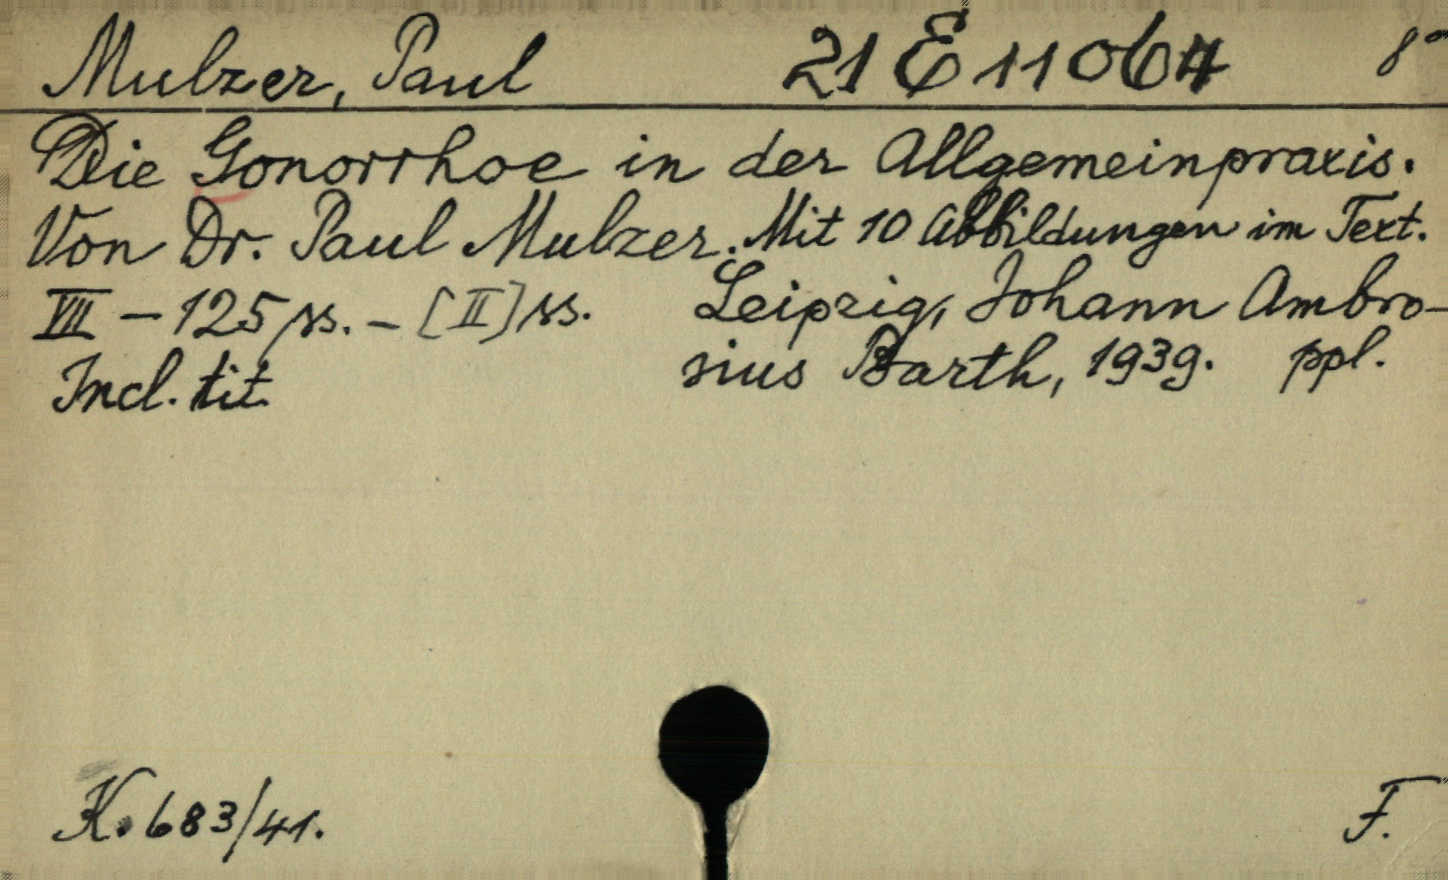 Mulzer, Paul 21 E 11064 8°
Die Gonorrhoe in der Allgemeinpraxis.
Von Dr. Paul Mulzer. Mit 10 Abbildungen im Text.
VII – 125 ss. – [II] ss. Leipzig, Johann Ambro-
Incl. tit. sius Barth, 1939. ppl.
K. 683/41. F.